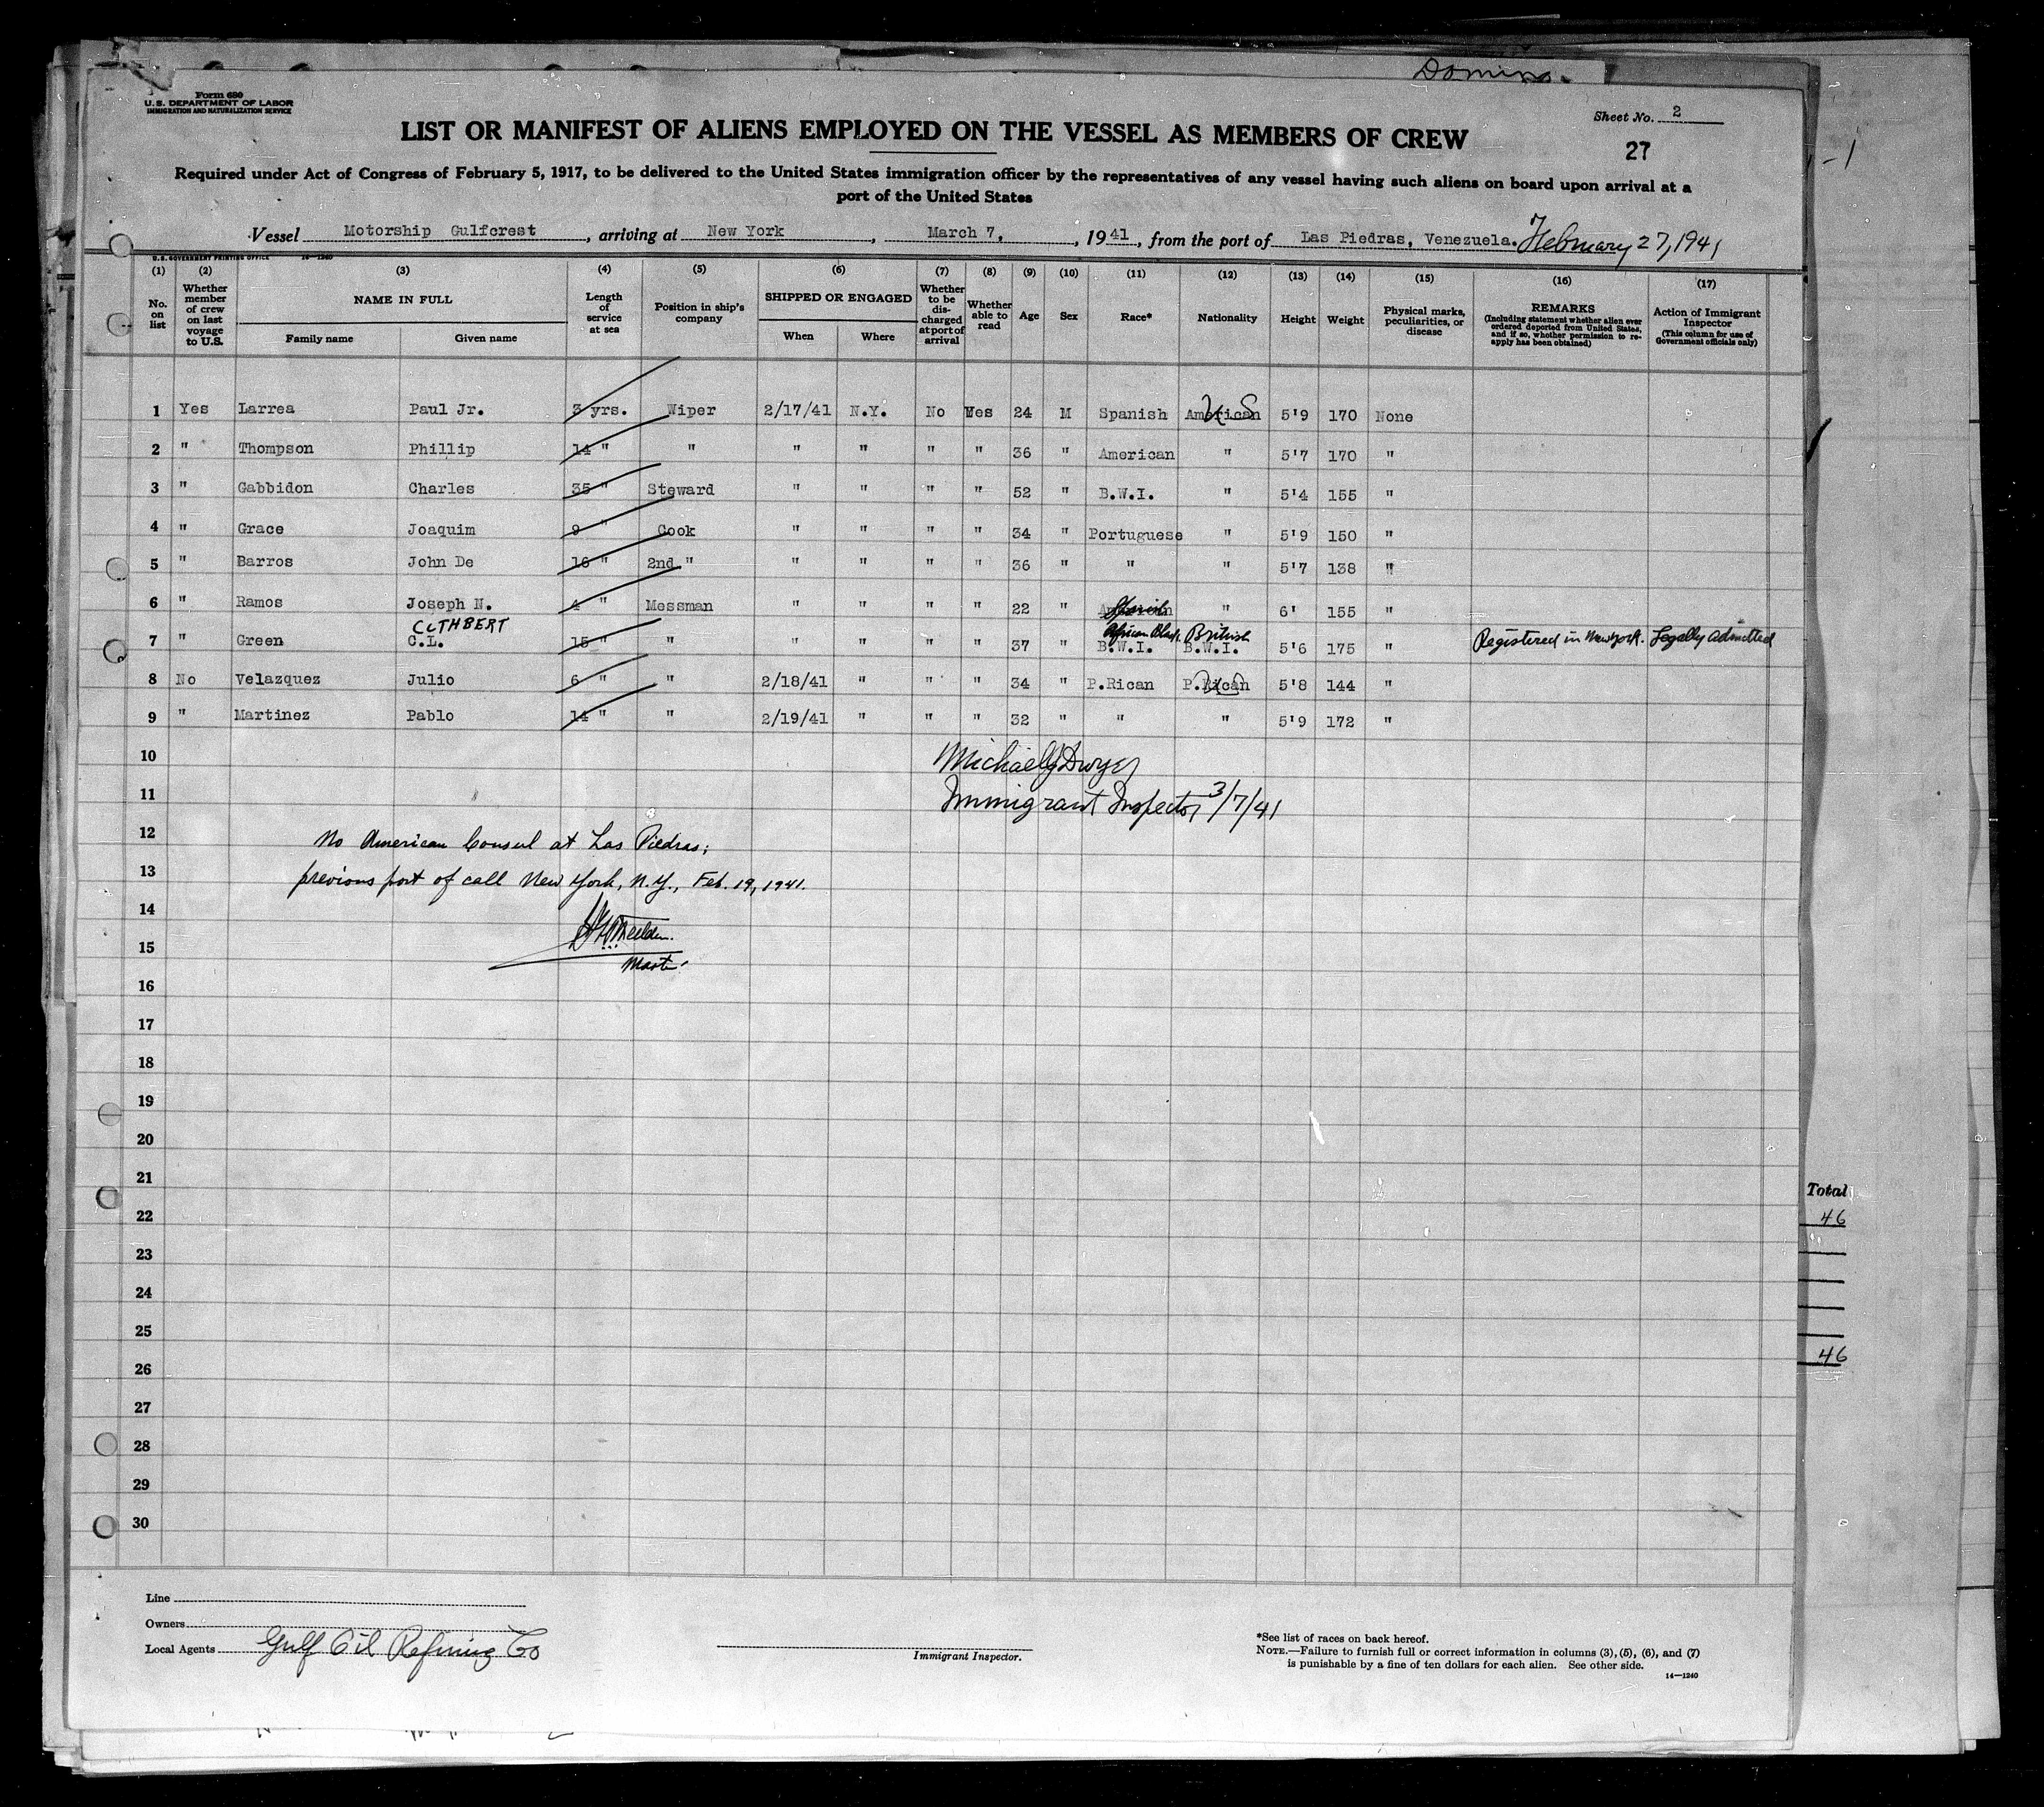 Domino.
Form 680
U.S. DEPARTMENT OF LABOR
IMMIGRATION AND NATURALIZATION SERVICE
Sheet No. 2
LIST OR MANIFEST OF ALIENS EMPLOYED ON THE VESSEL AS MEMBERS OF CREW
27
Required under Act of Congress of February 5, 1917, to be delivered to the United States immigration officer by the representatives of any vessel having such aliens on board upon arrival at a
port of the United States
Vessel Motorship Gulfcrest, arriving at New York, March 7, 1941, from the port of Las Piedras, Venezuela. February 27, 1941
U.S. GOVERNMENT PRINTING OFFICE 14—1240
(1) (2) (3) (4) (5) (6) (7) (8) (9) (10) (11) (12) (13) (14) (15) (16) (17)
No. on list
Whether member of crew on last voyage to U.S.
NAME IN FULL
Family name
Given name
Length of service at sea
Position in ship's company
SHIPPED OR ENGAGED
When
Where
Whether to be discharged at port of arrival
Whether able to read
Age
Sex
Race*
Nationality
Height
Weight
Physical marks, peculiarities, or disease
REMARKS
(Including statement whether alien ever ordered deported from United States, and if so, whether permission to re-apply has been obtained)
Action of Immigrant Inspector
(This column for use of Government officials only)
1 Yes Larrea Paul Jr. 3 yrs. Wiper 2/17/41 N.Y. No Yes 24 M Spanish American US 5'9 170 None
2 " Thompson Phillip 14 " " " " " " 36 " American " 5'7 170 "
3 " Gabbidon Charles 35 " Steward " " " " 52 " B.W.I. " 5'4 155 "
4 " Grace Joaquim 9 " Cook " " " " 34 " Portuguese " 5'9 150 "
5 " Barros John De 16 " 2nd " " " " " 36 " " " 5'7 138 "
6 " Ramos Joseph N. 4 " Messman " " " " 22 " American Spanish " 6' 155 "
CUTHBERT African Black British
7 " Green C.L. 15 " " " " " " 37 " B.W.I. B.W.I. 5'6 175 " Registered in New York. Legally Admitted
8 No Velazquez Julio 6 " " 2/18/41 " " " 34 " P.Rican P.Rican US 5'8 144 "
9 " Martinez Pablo 14 " " 2/19/41 " " " 32 " " " 5'9 172 "
10
Michael J Dwyer
11
Immigrant Inspector 3/7/41
12
No American Consul at Las Piedras;
13
previous port of call New York, N.Y., Feb. 19, 1941.
14
15
Master
16
17
18
19
20
21
22
23
24
25
26
27
28
29
30
Total
46
46
Line
Owners
Local Agents Gulf Oil Refining Co
Immigrant Inspector.
*See list of races on back hereof.
NOTE.—Failure to furnish full or correct information in columns (3), (5), (6), and (7)
is punishable by a fine of ten dollars for each alien. See other side.
14—1240